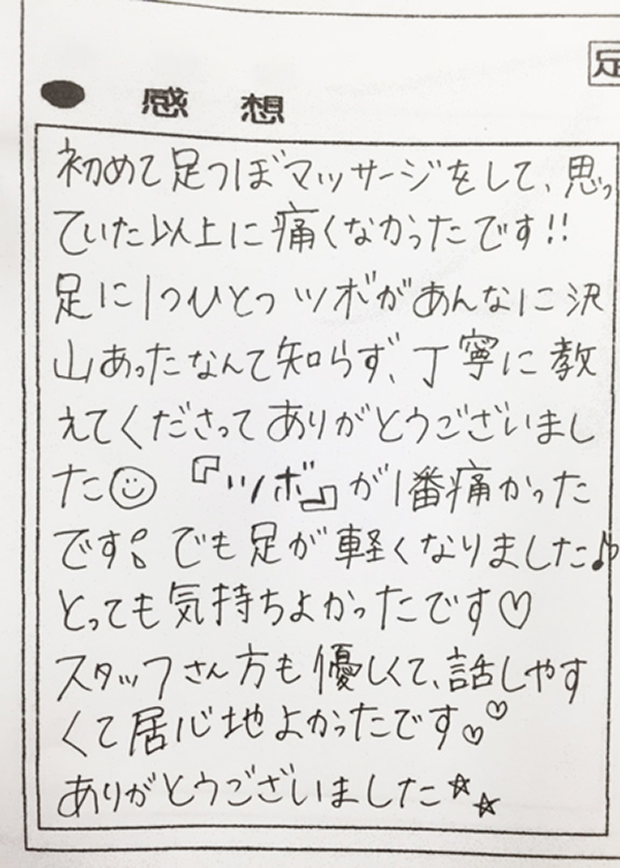 足
● 感想
初めて足つぼマッサージをして、思っ
ていた以上に痛くなかったです!!
足に1つひとつツボがあんなに沢
山あったなんて知らず、丁寧に教
えてくださってありがとうございまし
た☺『ツボ』が1番痛かった
です。でも足が軽くなりました♪
とっても気持ちよかったです♡
スタッフさん方も優しくて、話しやす
くて居心地よかったです♡♡
ありがとうございました☆☆